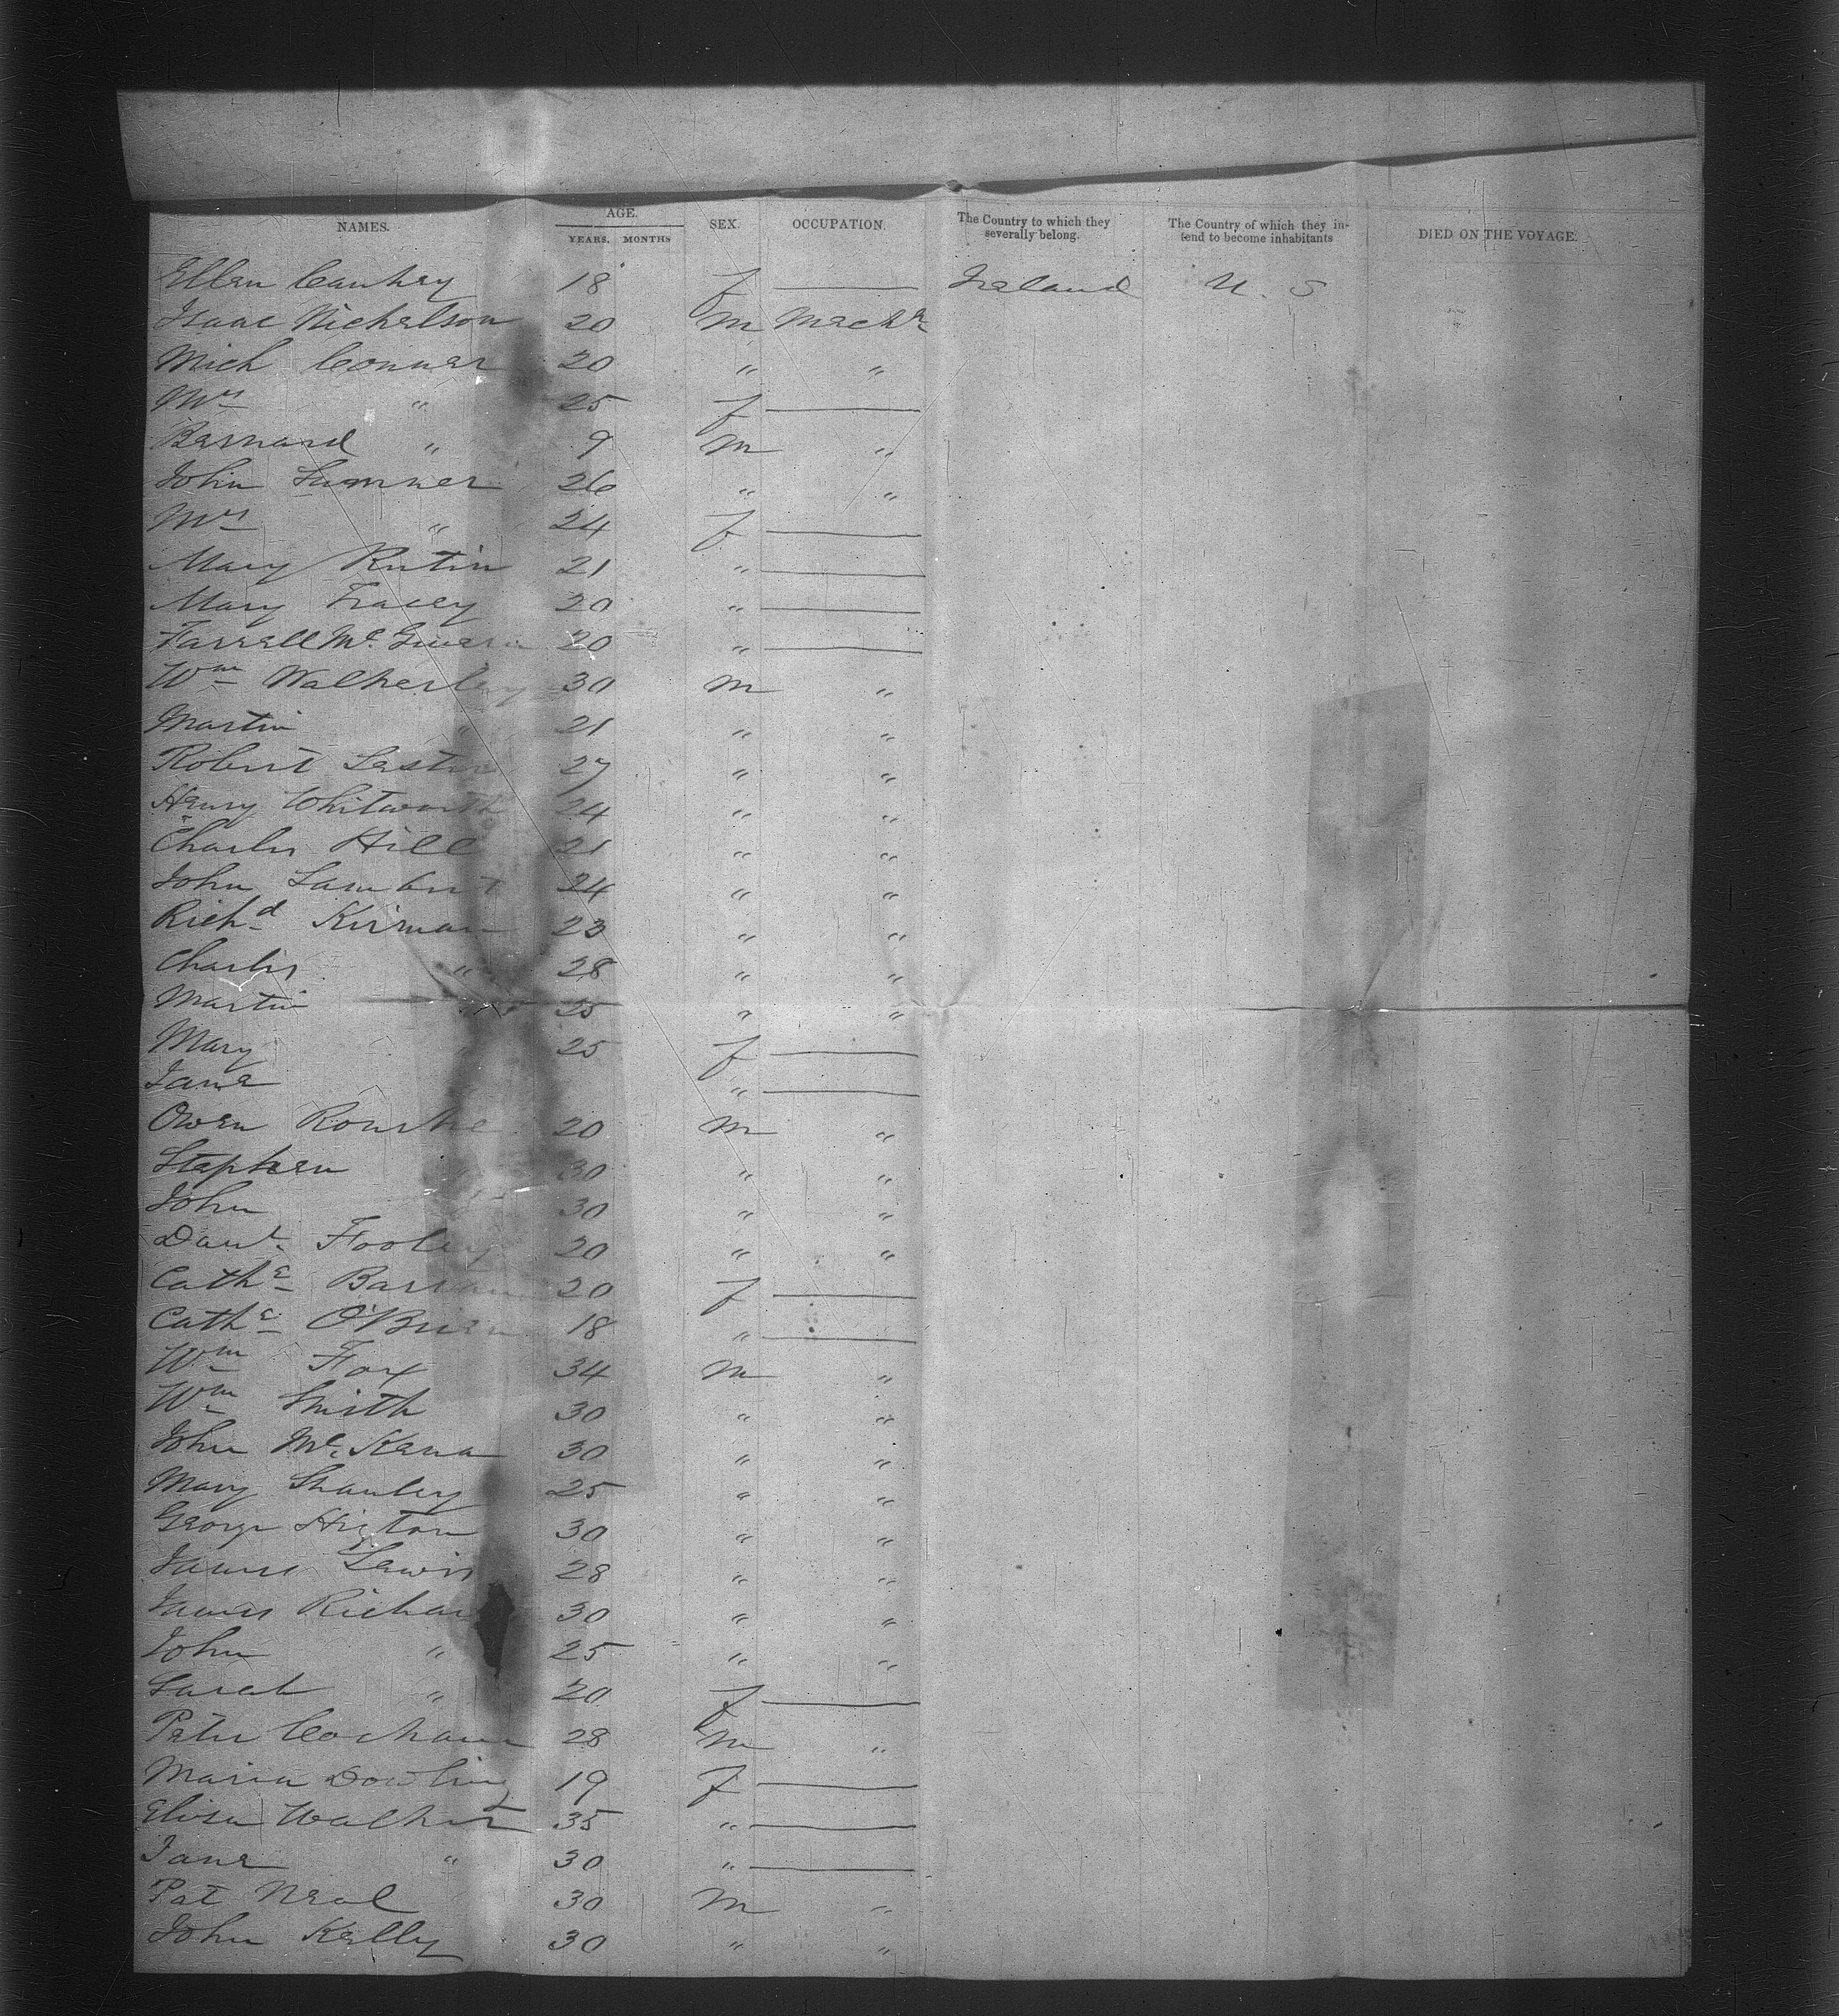 NAMES. AGE. SEX. OCCUPATION. The Country to which they severally belong. The Country of which they intend to become inhabitants DIED ON THE VOYAGE.
YEARS. MONTHS
Ellen 18 f — Ireland U. S
Isaac Nichelson 20 m Mechc
Mich Conner 20 " "
Mrs " 25 f —
Barnard " 9 m "
John Sumner 26 " "
Mrs " 24 f —
Mary Rutin 21 " —
Mary Tracey 20 " —
Farrell Mc 20 " —
Wm 30 m "
Martin " 21 " "
Robert 27 " "
Henry Whitworth 24 " "
Charles Hill 21 " "
John Lambert 24 " "
Richd Kirman 23 " "
Charles " 28 " "
Martin 25 " "
Mary " 25 f —
Jane " —
Owen Rourke 20 m "
Stephen 30 " "
John 30 " "
Danl Fooley 20 " "
Cathe 20 f —
Cathe O'Brien 18 " —
Wm Fox 34 m "
Wm Smith 30 " "
John Mc Kena 30 " "
Mary Shanley 25 " "
George Hicton 30 " "
James Lewis 28 " "
James Richar 30 " "
John " 25 " "
Sarah " 20 f —
Peter 28 m "
Maria Dowling 19 f —
Elisa Walker 35 " —
Jane " 30 " —
Pat Neal 30 m "
John Kelly 30 " "